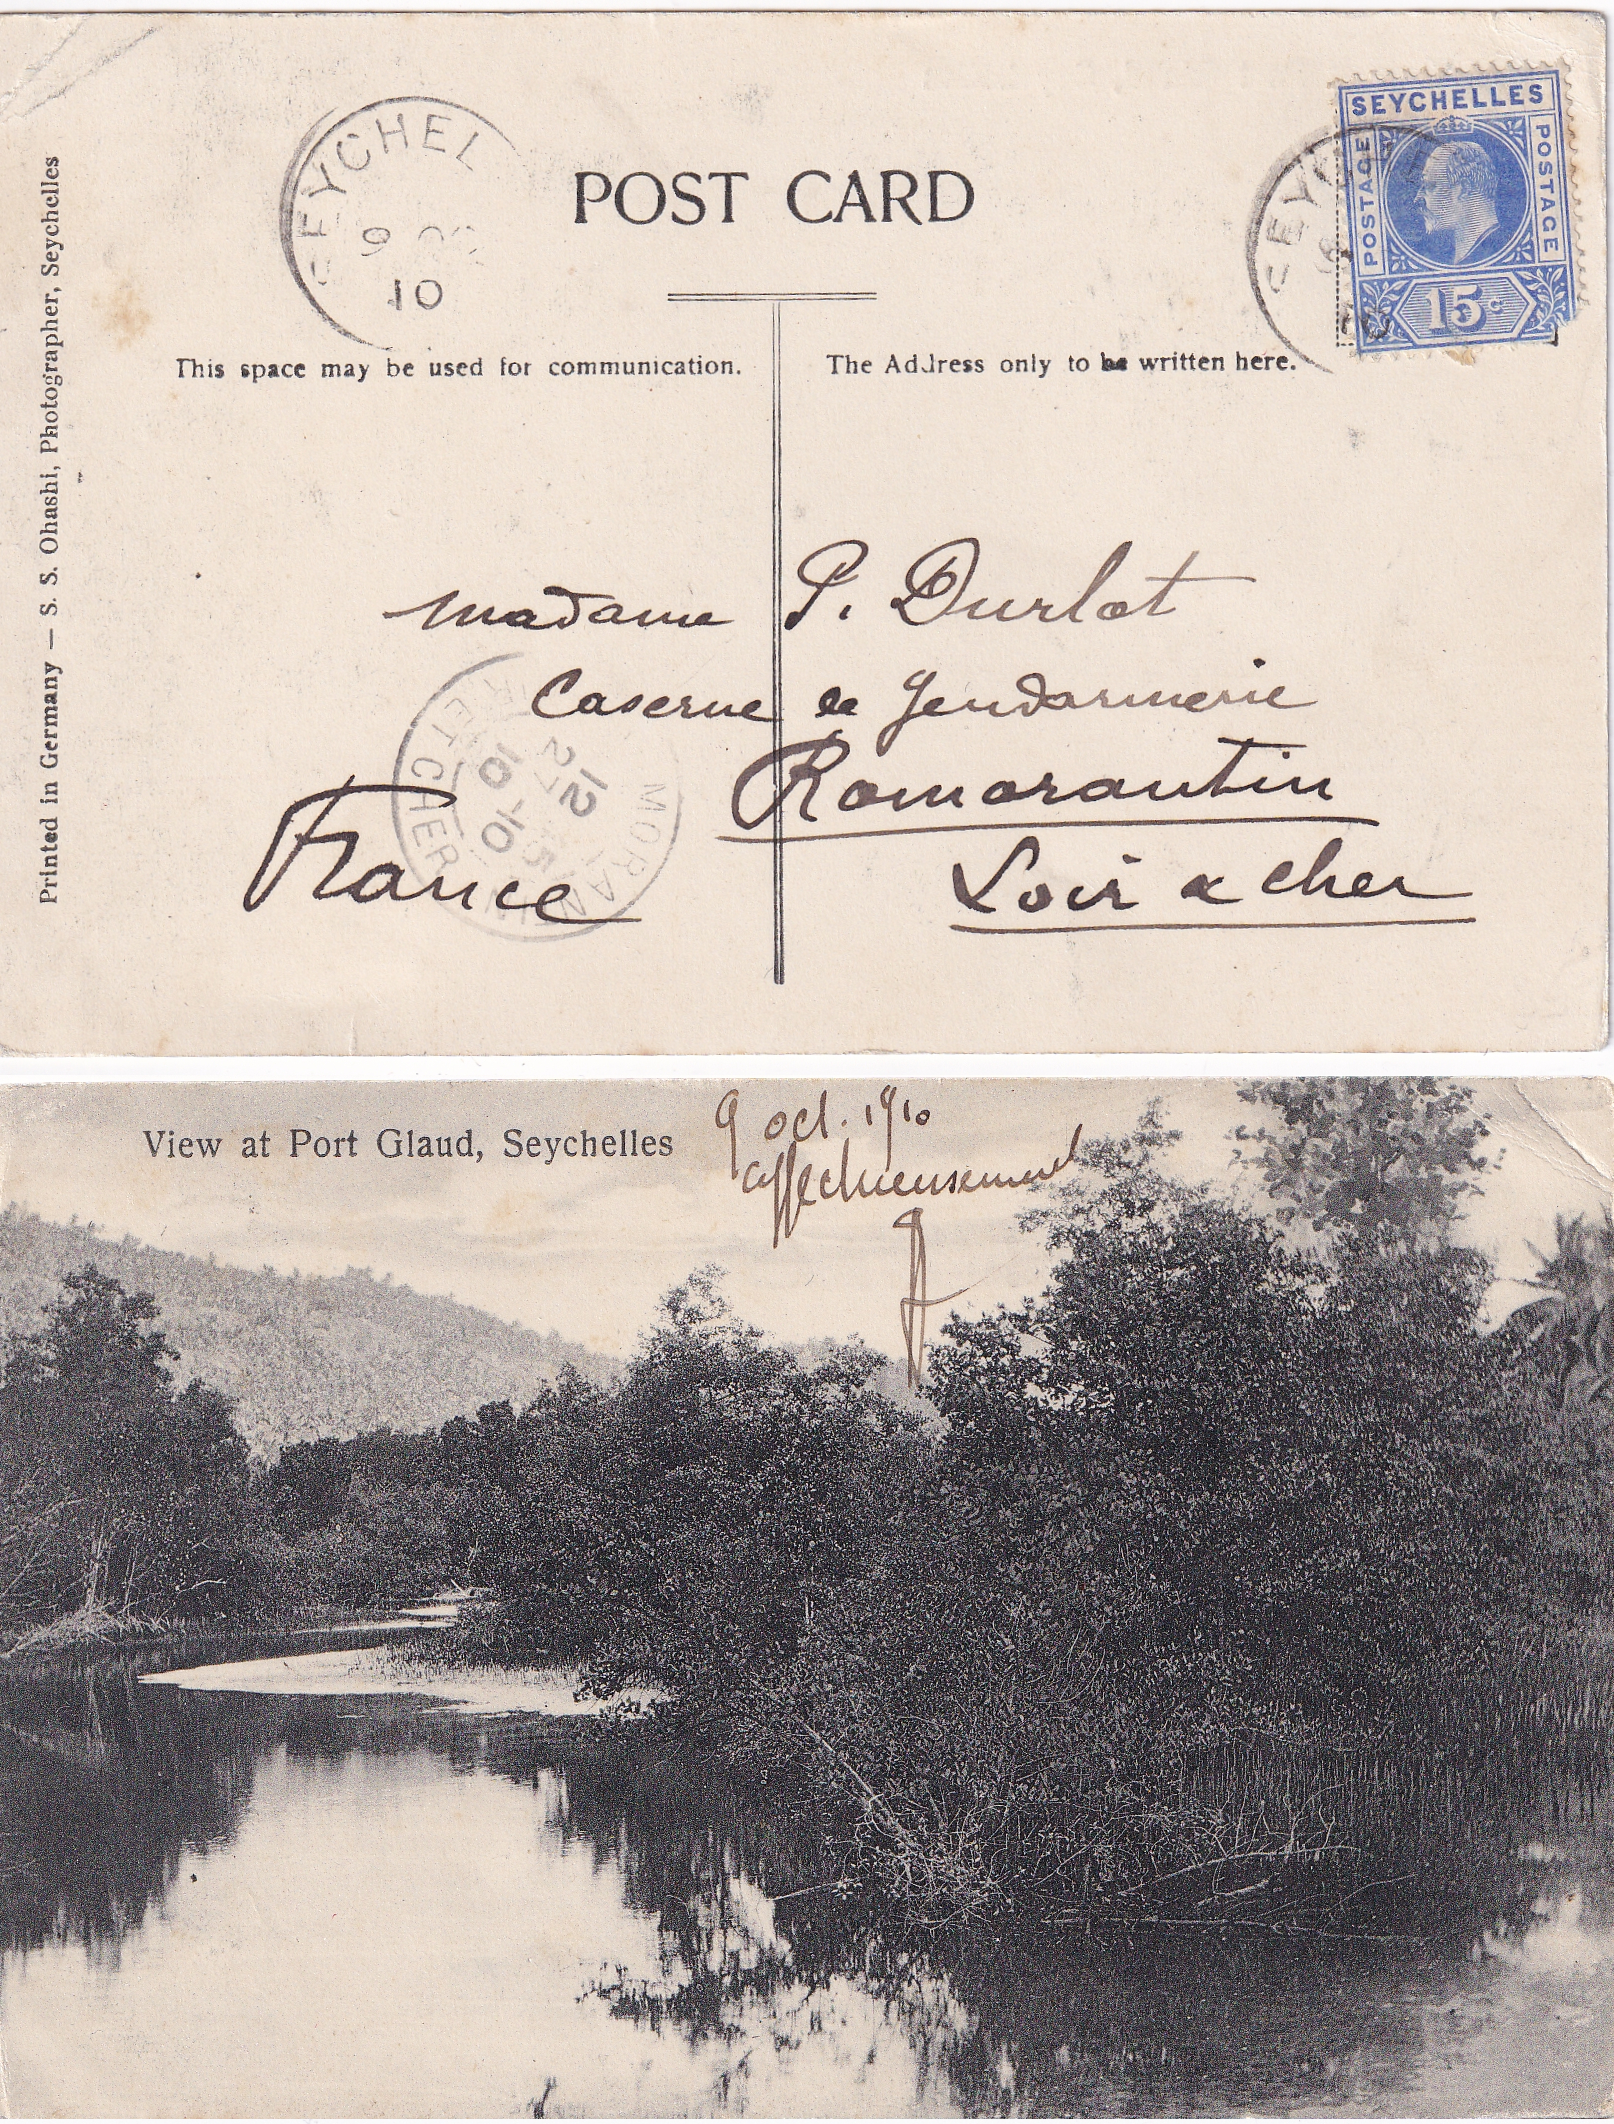 Printed in Germany — S. S. Ohashi, Photographer, Seychelles
SEYCHEL
9 OC
10
POST CARD
SEYCHELLES
POSTAGE
POSTAGE
15c
SEYCHE
This space may be used for communication.
The Address only to be written here.
Madame P. Durlot
Caserne de Gendarmerie
Romorantin
Loir & Cher
France
MORANTIN
ET CHER
12
27
10-10
View at Port Glaud, Seychelles
9 oct. 1910
affectueusement